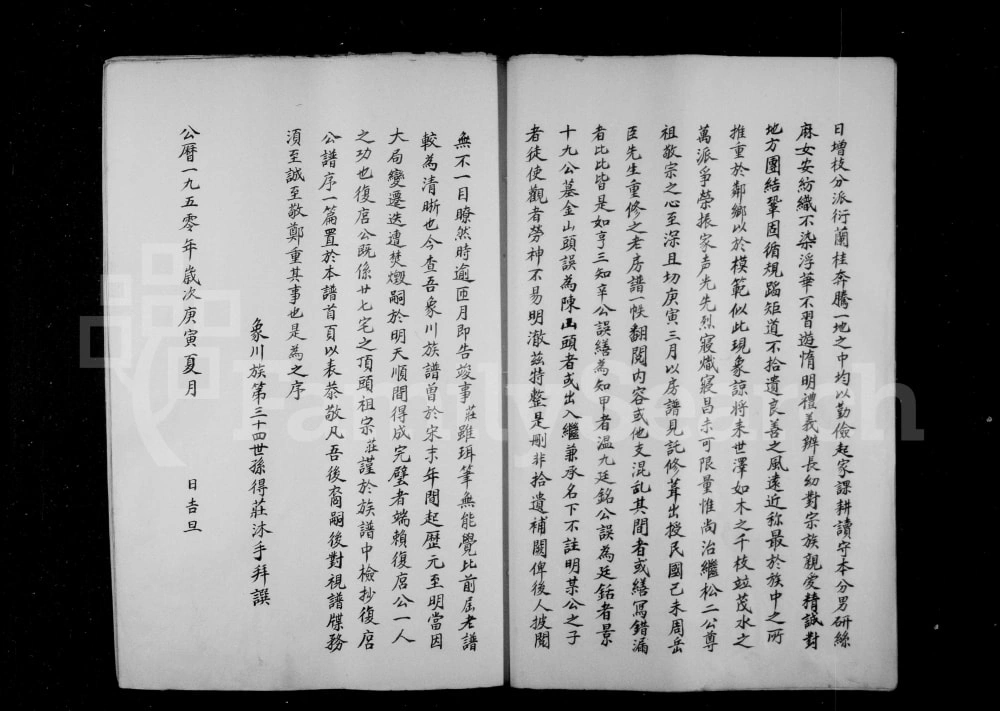 日增枝分派衍蘭桂奔騰一地之中均以勤儉起家課耕讀守本分男研絲
麻女安紡織不染浮華不習遊惰明禮義辨長幼對宗族親愛精誠對
地方團結鞏固循規蹈矩道不拾遺良善之風遠近称最於族中之所
推重於鄰鄉以於模範似此現象諒將来世澤如木之千枝竝茂水之
萬派爭榮振家声光先烈寢熾寢昌未可限量惟尚治繼松二公尊
祖敬宗之心至深且切庚寅三月以房譜見託修葺出授民國己未周岳
臣先生重修之老房譜一帙翻閱内容或他支混乱其間者或繕寫錯漏
者比比皆是如亨三知辛公誤繕為知甲者溫九廷銘公誤為廷銛者景
十九公墓金山頭誤為陳山頭者或出入繼兼承名下不註明某公之子
者徒使觀者勞神不易明澈茲特整是刪非拾遺補闕俾後人披閱
無不一目瞭然時逾匝月即告竣事莊雖珥筆無能覺比前屆老譜
較為清晰也今查吾象川族譜曾於宋末年間起歷元至明當因
大局變遷迭遭焚燬嗣於明天順間得成完璧者端賴復𢈪公一人
之功也復𢈪公既係廿七宅之頂頭祖宗莊謹於族譜中檢抄復𢈪
公譜序一篇置於本譜首頁以表恭敬凡吾後裔嗣後對視譜牒務
須至誠至敬鄭重其事也是為之序
象川族第三十四世孫得莊沐手拜譔
公曆一九五零年歲次庚寅夏月 日吉旦
FamilySearch